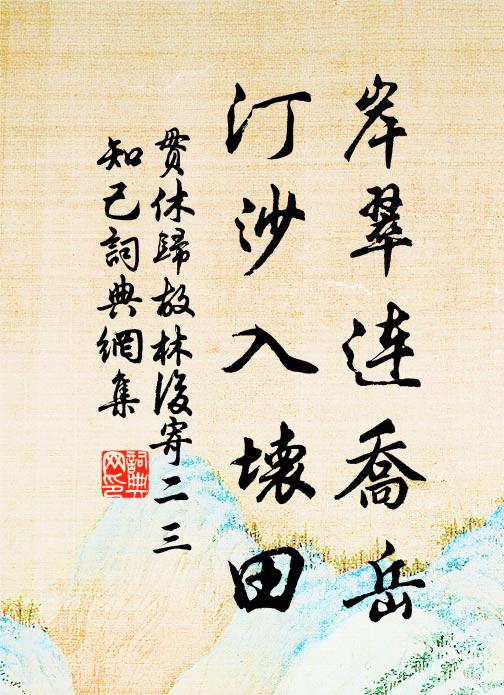 岸翠连喬岳
汀沙入壊田
貫休歸故林後寄二三
知己詞典網集
詞典
网印